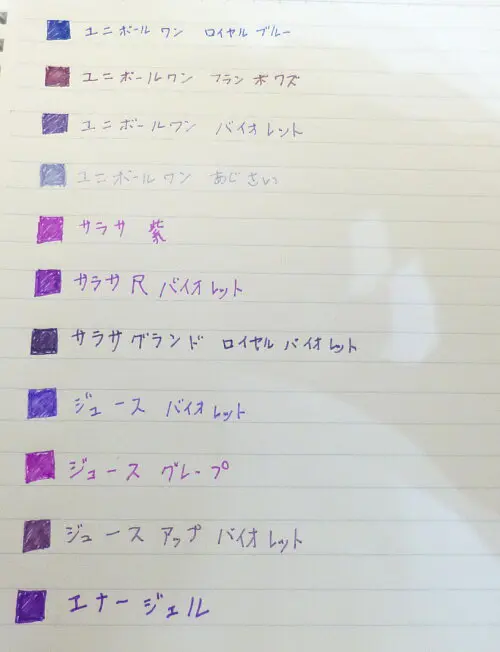 ユニボールワン ロイヤルブルー
ユニボールワン フランボワズ
ユニボールワン バイオレット
ユニボールワン あじさい
サラサ 紫
サラサR バイオレット
サラサグランド ロイヤルバイオレット
ジュース バイオレット
ジュース グレープ
ジュースアップ バイオレット
エナージェル